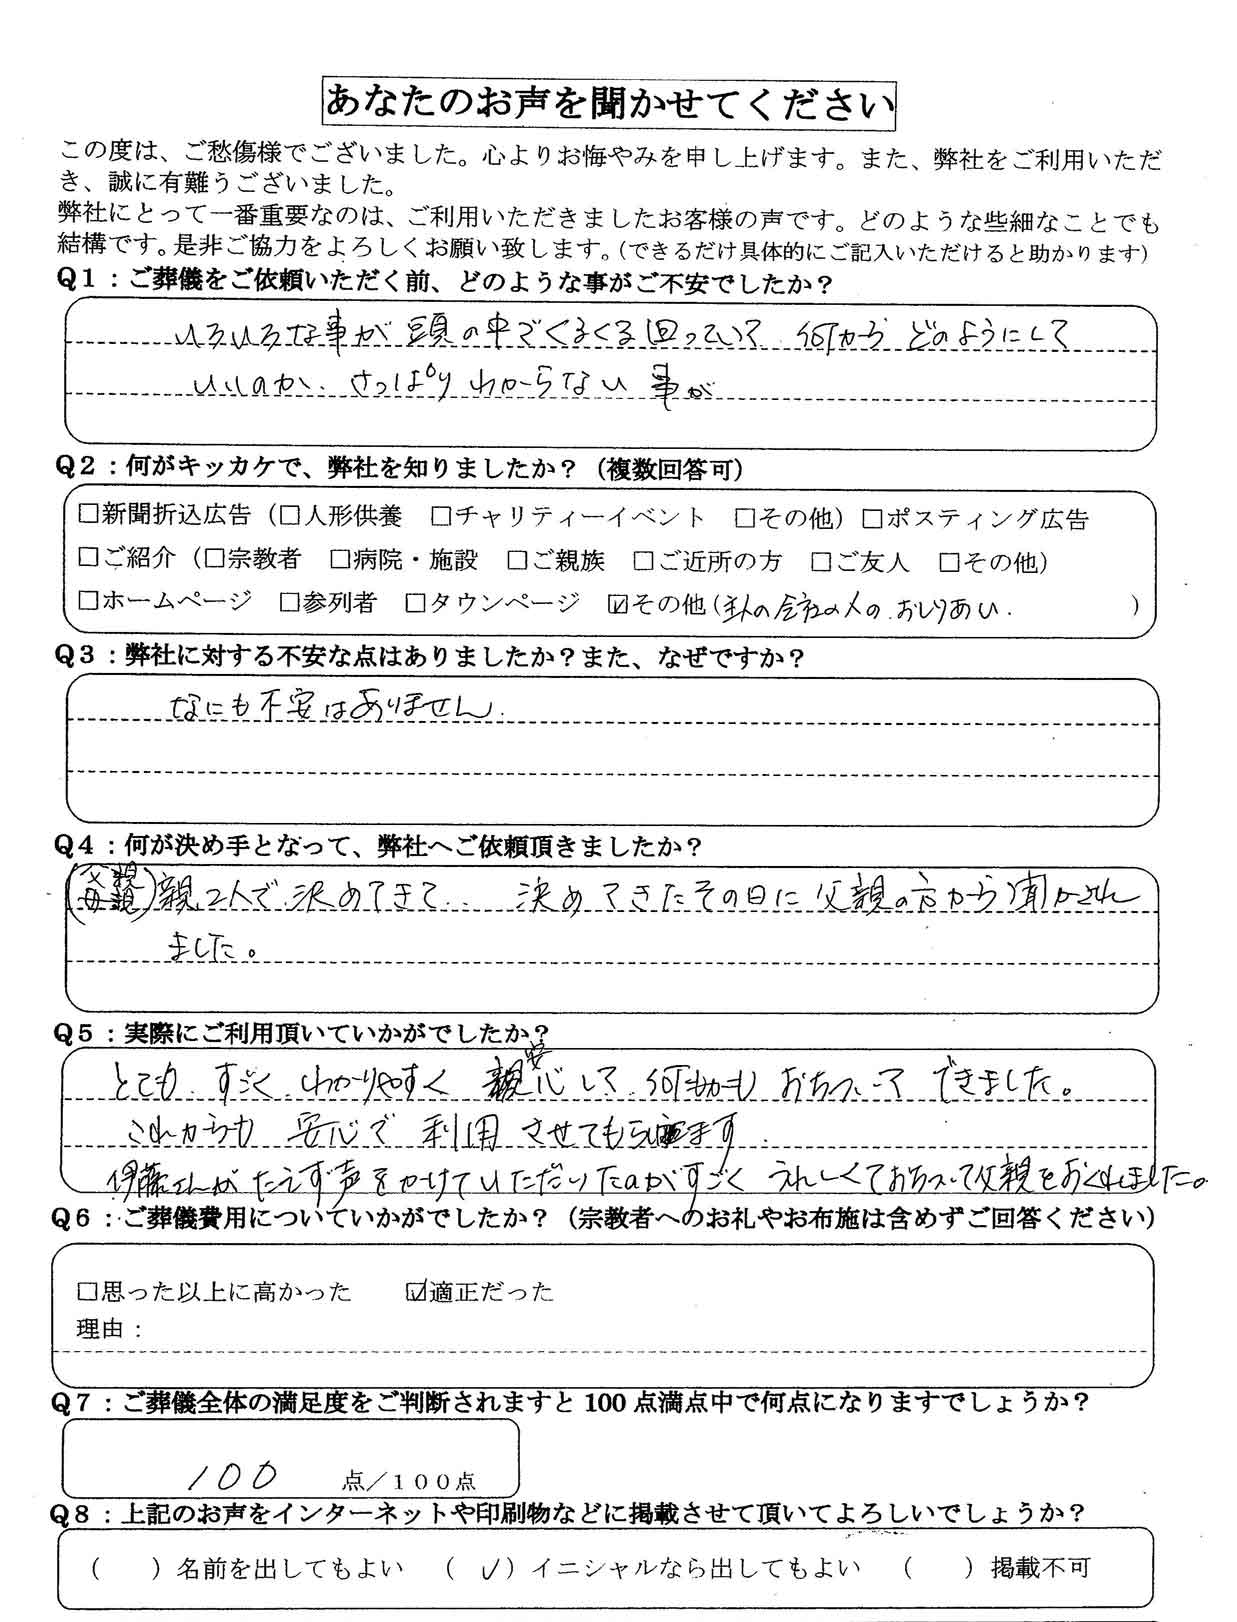 あなたのお声を聞かせてください
この度は、ご愁傷様でございました。心よりお悔やみを申し上げます。また、弊社をご利用いただ
き、誠に有難うございました。
弊社にとって一番重要なのは、ご利用いただきましたお客様の声です。どのような些細なことでも
結構です。是非ご協力をよろしくお願い致します。（できるだけ具体的にご記入いただけると助かります）
Q1：ご葬儀をご依頼いただく前、どのような事がご不安でしたか？
いろいろな事が頭の中でくるくる回っていて 何から どのようにして
いいのか、さっぱりわからない事が
Q2：何がキッカケで、弊社を知りましたか？（複数回答可）
□新聞折込広告（□人形供養 □チャリティーイベント □その他）□ポスティング広告
□ご紹介（□宗教者 □病院・施設 □ご親族 □ご近所の方 □ご友人 □その他）
□ホームページ □参列者 □タウンページ ☑その他（私の会社の人の.おしりあい. ）
Q3：弊社に対する不安な点はありましたか？また、なぜですか？
なにも不安はありません.
Q4：何が決め手となって、弊社へご依頼頂きましたか？
(父親 母親)親2人で.決めてきて.. 決めてきたその日に父親の方から聞かされ
ました。
Q5：実際にご利用頂いていかがでしたか？
とても.すごく.わかりやすく 安心して.何もかも おちついて できました。
これからも 安心で 利用 させてもらいます.
伊藤さんが たえず声をかけていただいたのがすごく うれしくておちついて父親をおくれました。
Q6：ご葬儀費用についていかがでしたか？（宗教者へのお礼やお布施は含めずご回答ください）
□思った以上に高かった ☑適正だった
理由：
Q7：ご葬儀全体の満足度をご判断されますと100点満点中で何点になりますでしょうか？
100 点／１００点
Q8：上記のお声をインターネットや印刷物などに掲載させて頂いてよろしいでしょうか？
（ ）名前を出してもよい （ ✓）イニシャルなら出してもよい （ ）掲載不可